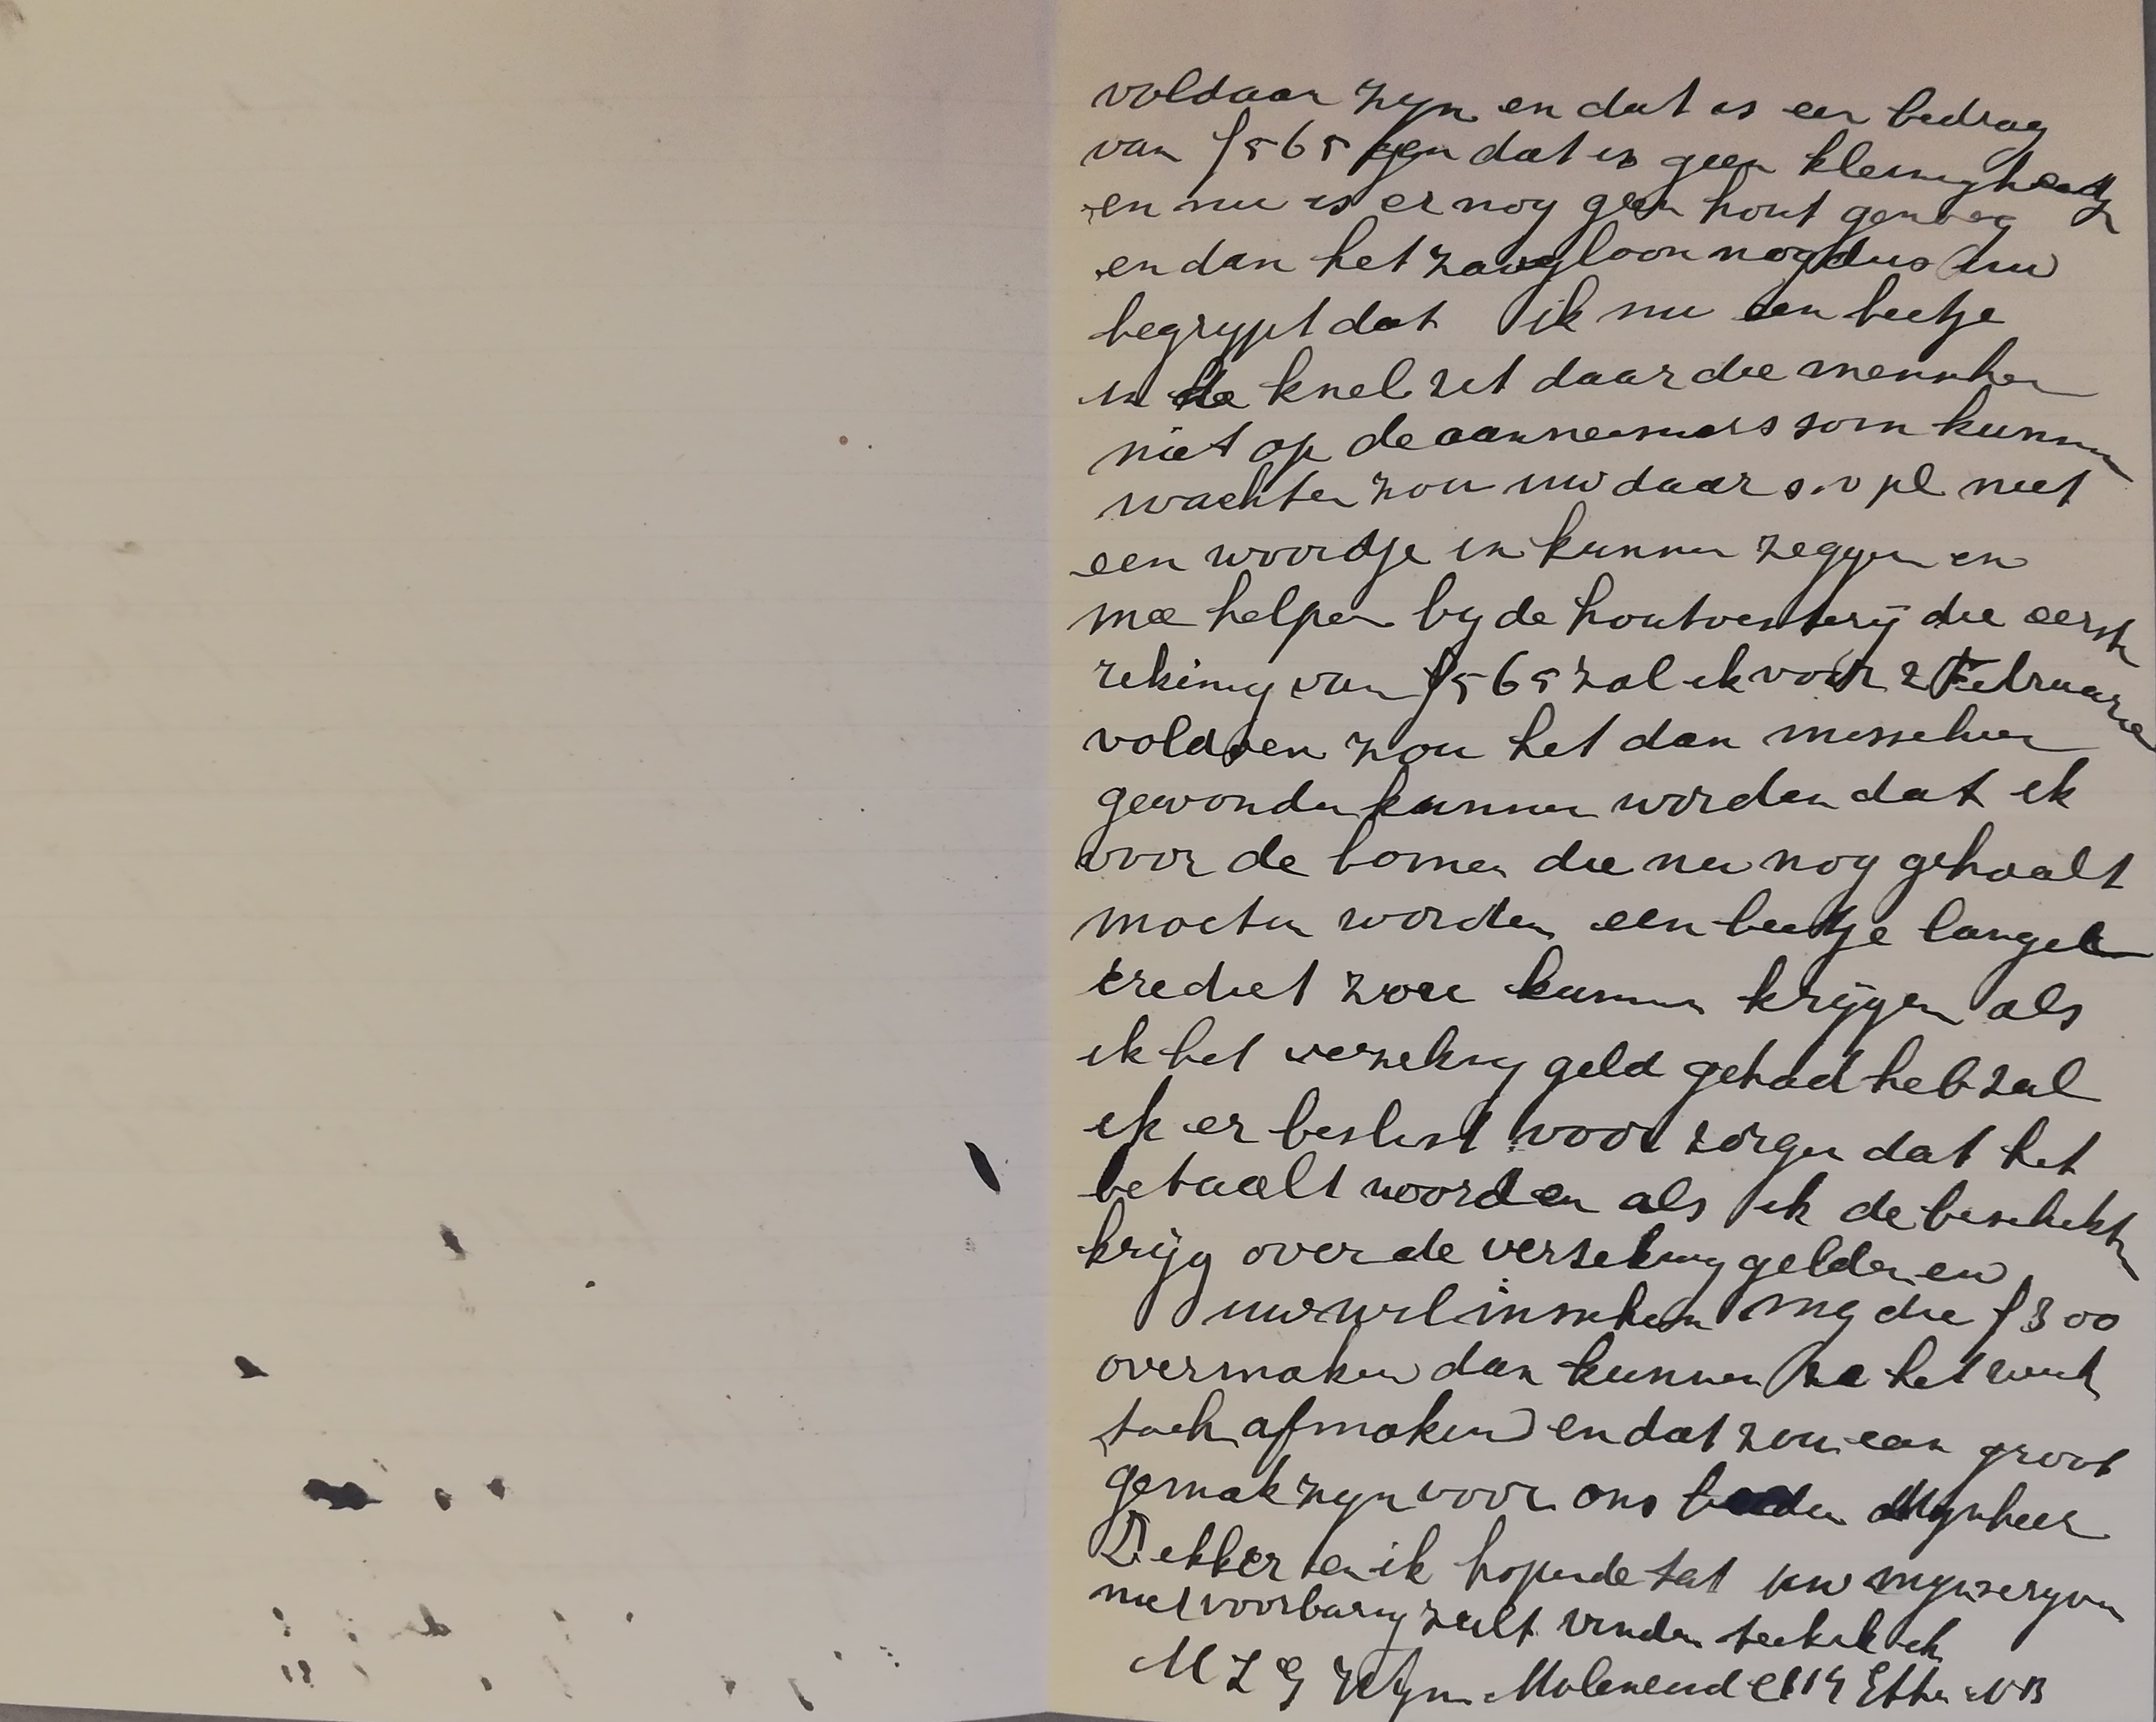 voldaan zyn en dat is een bedrag
van f 565 en dat is geen kleinigheid
en nu is er nog geen hout genoeg
en dan het zaagloon nog dus uw
begrypt dat ik nu een beetje
in de knel zit daar die menschen
niet op de aannemers som kunnen
wachten zou uw daar s.v pl niet
een woordje in kunnen zeggen en
me helpen by de houtvesterij die eerste
rekening van f 565 zal ik voor 2 Februarie
voldoen zou het dan misschien
gevonden kunnen worden dat ik
voor de bomen die nu nog gehaalt
moeten worden een beetje langer
crediet zou kunnen krijgen als
ik het verzekring geld gehad heb zal
ik er beslist voor zorgen dat het
betaalt worden als ik de beschikking
krijg over de versekring gelden en
uw wil inmiddels my die f 300
overmaken dan kunnen ze het werk
toch afmaken en dat zou een groot
gemak zyn voor ons beiden Mynheer
Dekker en ik hopende dat uw myn
niet voorbarig zult vinden teeken ik
M Z G Molenend